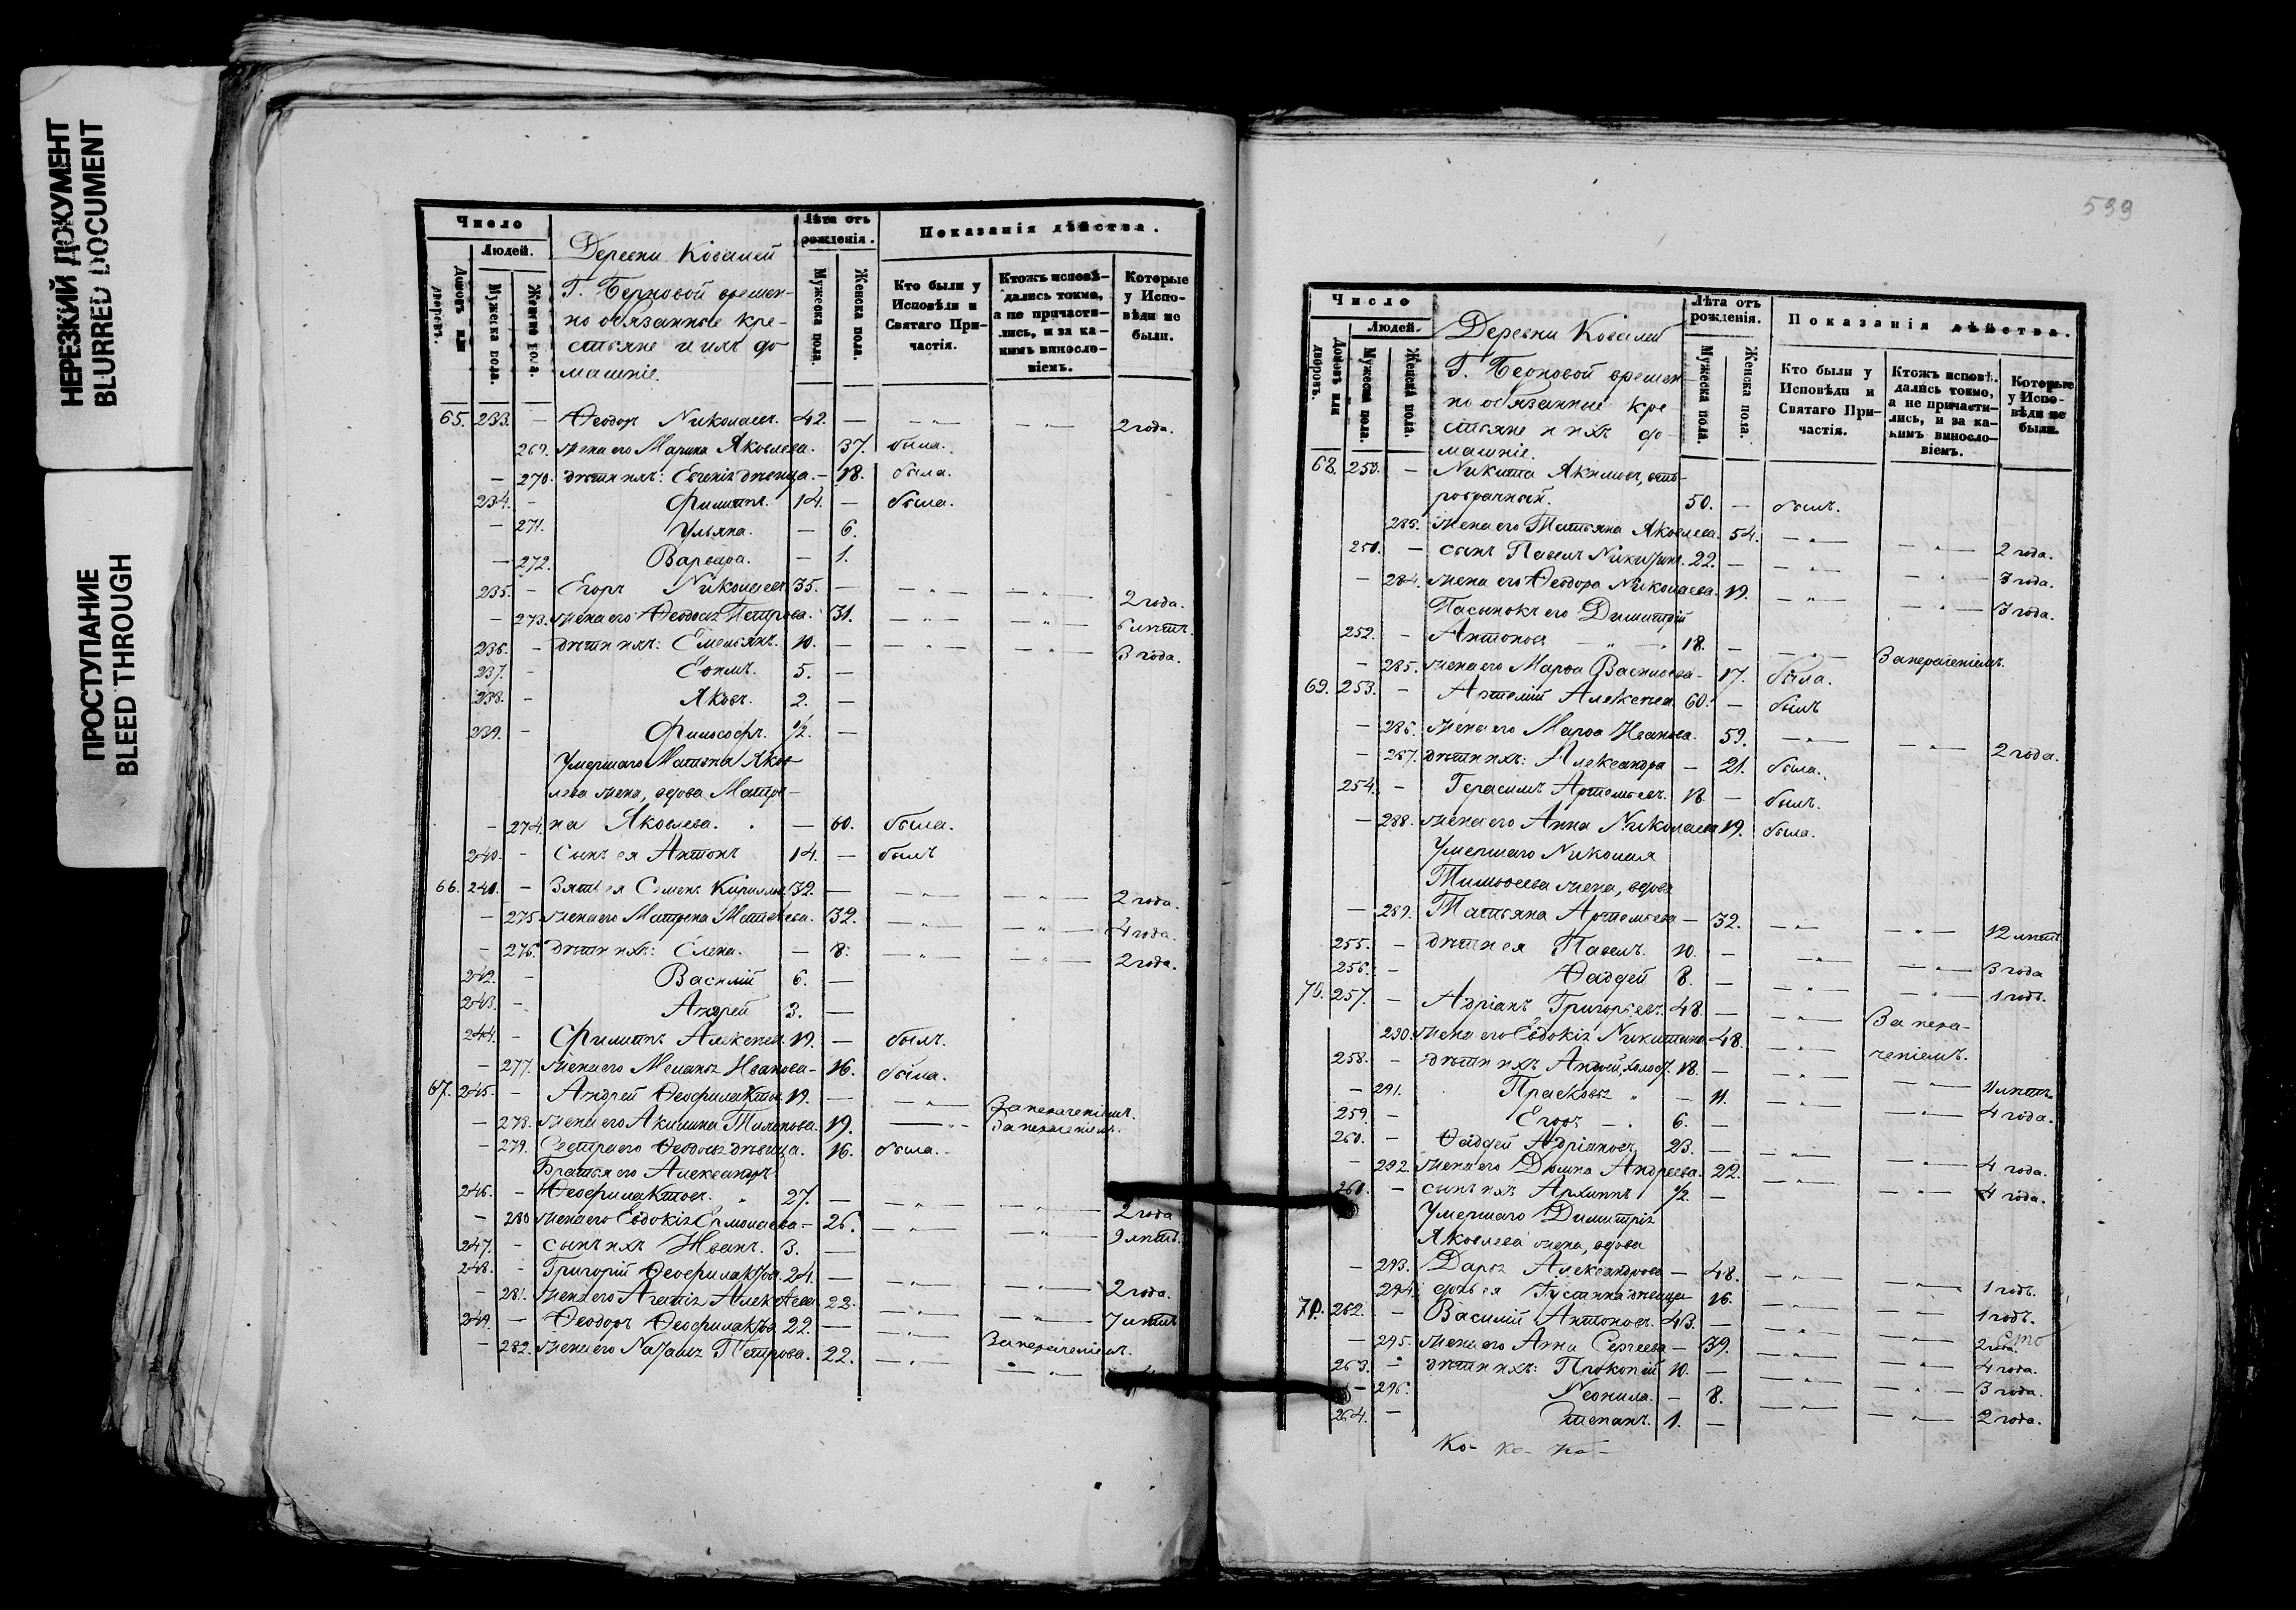 НЕРЕЗКИЙ ДОКУМЕНТ
BLURRED DOCUMENT
ПРОСТУПАНИЕ
BLEED THROUGH
Число
Людей.
Домовъ или дворовъ.
Мужеска пола.
Женска пола.
Деревни Ковалей
Г. Берновой времен-
но обязанные кре-
стьяне и ихъ до
машніе.
Лѣта отъ рожденія.
Мужеска пола.
Женска пола.
Показанія дѣйства.
Кто были у Исповѣди и Святаго При-частія.
Ктожъ исповѣ-дались токмо, а не причасти-лись, и за ка-кимъ винословіемъ.
Которые у Испо-вѣди не были.
65. 233. — Ѳеодоръ Николаевъ. 42. — — „ — — „ — 2 года.
269. жена его Марина Яковлева. 37. была.
— 270. дѣти ихъ: Евгенія дѣвица. — 18. была.
234. — Филиппъ. 14. — была.
— 271. Ульяна. — 6.
— 272. Варвара. — 1.
235. — Егоръ Николаевъ 35. — — „ — — „ — 2 года.
— 273. жена его Ѳеодосія Петрова. 31. — „ — — „ — 6 лѣтъ.
236. — дѣти ихъ: Емельянъ. 10. — — „ — — „ — 3 года.
237. — Ефимъ. 5. —
238. — Яковъ. 2. —
239. — Философъ. 1/2. —
Умершаго Матвѣя Яков-
лева жена, вдова Матре-
— 274. на Яковлева. — 60. была.
240. — Сынъ ея Антонъ 14. — былъ
66. 241. — Зять ея Семенъ Кирилловъ 32. — — „ — — „ — 2 года.
— 275. жена его Матрена Матвѣева. 32. — „ — — „ — 4 года.
— 276. дѣти ихъ: Елена. — 8. — „ — — „ — 2 года.
242. — Василій 6. —
243. — Андрей 3. —
244. — Филиппъ Алексѣевъ 19. — былъ.
— 277. жена его Меланія Иванова — 16. была.
67. 245. — Андрей Ѳеофилактовъ 19. — — „ — За нераченіемъ.
— 278. жена его Акилина Тихонова. 19. — „ — За нераченіемъ.
— 279. Сестра его Ѳеодосія дѣвица. 16. была.
Братья его Александръ
246. — Ѳеофилактовъ. „ 27. — — „ — — „ — 2 года
— 280 жена его Евдокія Ермолаева — 26. — „ — — „ — 9 лѣтъ.
247. — сынъ ихъ Иванъ. 3. —
248. — Григорій Ѳеофилактовъ. 24. — — „ — — „ — 2 года.
— 281. жена его Агапія Алексѣева 22. — „ — — „ — 7 лѣтъ
249. — Ѳеодоръ Ѳеофилактовъ 22. — — „ — За нераченіемъ.
— 282. жена его Наталія Петрова. 22. — „ — — „ —
539
Число
Людей.
Домовъ или дворовъ.
Мужеска пола.
Женска пола.
Деревни Ковалей
Г. Берновой времен-
но обязанные кре-
стьяне и ихъ до-
машніе.
Лѣта отъ рожденія.
Мужеска пола.
Женска пола.
Показанія дѣйства.
Кто были у Исповѣди и Святаго При-частія.
Ктожъ исповѣ-дались токмо, а не причасти-лись, и за ка-кимъ винословіемъ.
Которые у Испо-вѣди не были.
68. 250. — Никита Акимовъ, вто-
робрачный. 50. — былъ.
283. жена его Татьяна Яковлева. 54. — „ — — „ — 2 года.
251. — сынъ Павелъ Никитинъ. 22. — — „ — — „ — 3 года.
— 284. жена его Ѳеодора Николаева. 19. — „ — — „ — 3 года.
Пасынокъ его Димитрій
252. — Антоновъ 18. — — „ — За нераченіемъ.
— 285. жена его Марѳа Васильева — 17. была.
69. 253. — Артемій Алексѣевъ 60. — былъ
— 286. жена его Марѳа Иванова. 59. — „ — — „ — 2 года.
— 287. дѣти ихъ: Александра — 21. была.
254. — Герасимъ Артемьевъ. 18 — былъ.
— 288. жена его Анна Николаева 19. была.
Умершаго Николая
Тимоѳеева жена, вдова
— 289. Татьяна Артемьева — 32. — „ — — „ — 12 лѣтъ
255. — дѣти ея Павелъ. 10. — — „ — — „ — 3 года
256. — Ѳаддей 8. — — „ — — „ — 1 годъ.
70. 257. — Адріанъ Григорьевъ. 48. — — „ — За нера-
290. жена его Евдокія Никитина 48. — „ — ченіемъ.
258. — дѣти ихъ Андрей, холост. 18. — — „ — — „ — 11 лѣтъ
— 291. Прасковья „ — 11. — „ — — „ — 4 года.
259. — Егоръ — 6. —
260. — Ѳаддей Адріановъ 23. — — „ — — „ — 4 года.
— 292. жена его Домна Андреева. 22. — „ — — „ — 4 года.
261. — сынъ ихъ Архиппъ 1/2. —
Умершаго Димитрія
Яковлева жена, вдова
— 293. Дарья Александрова — 48. — „ — — „ — 1 годъ.
294. дочь ея Іустина дѣвица 16. — „ — — „ — 1 годъ.
71. 262. — Василій Антоновъ. 43. — — „ — — „ — 2 года.
— 295. жена его Анна Сергеева — 39. — „ — — „ — 4 года.
263. — дѣти ихъ: Прокопій 10. — — „ — — „ — 3 года.
— 296. Неонила. — 8. — „ — — „ — 2 года.
264. — Степанъ. 1. —
Ко- ко- но-